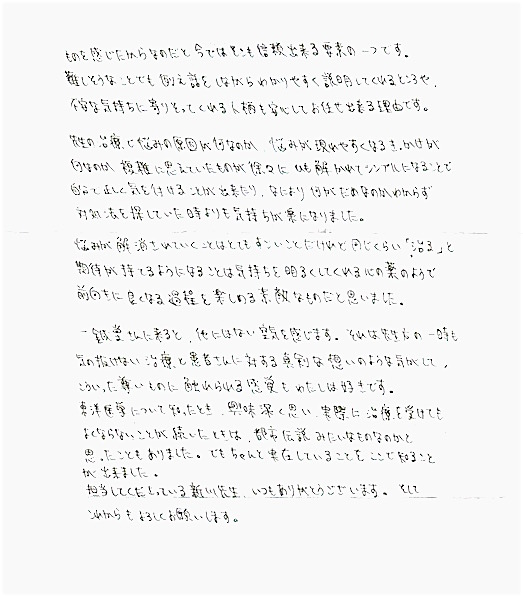 ものを感じたからなのだと今ではとても信頼出来る要素の一つです。
難しそうなことでも例え話をしながらわかりやすく説明してくれるところや、
不安な気持ちに寄りそってくれる人柄も安心してお任せ出来る理由です。
先生の治療で悩みの原因が何なのか、悩みが現れやすくなるきっかけが
何なのか 複雑に思えていたものが徐々に ひも解かれてシンプルになることで
自分で正しく気を付けることが出来たり、なにより何がだめなのかわからず
対処法を探していた時よりも気持ちが楽になりました。
悩みが解消されていくことはとてもすごいことだけれど同じくらい「治る」と
期待が持てるようになることは気持ちを明るくしてくれる心の薬のようで
前向きに良くなる過程を楽しめる素敵なものだと思いました。
一鍼堂さんに来ると、他にはない空気を感じます。それは先生方の一時も
気の抜けない治療と患者さんに対する真剣な想いのような気がして、
こういった尊いものに触れられる感覚もわたしは好きです。
東洋医学について知ったとき、興味深く思い、実際に治療を受けても
よくならないことが続いたときは、都市伝説みたいなものなのかと
思ったこともありました。でもちゃんと実在していることをここで知ること
が出来ました。
担当してくださっている新川先生、いつもありがとうございます。そして
これからもよろしくお願いします。